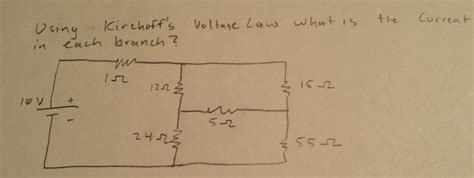 Using Kirchoff's Voltage Law what is the Current
in each branch?
1Ω
12Ω
15Ω
10V
+
-
5Ω
24Ω
55Ω